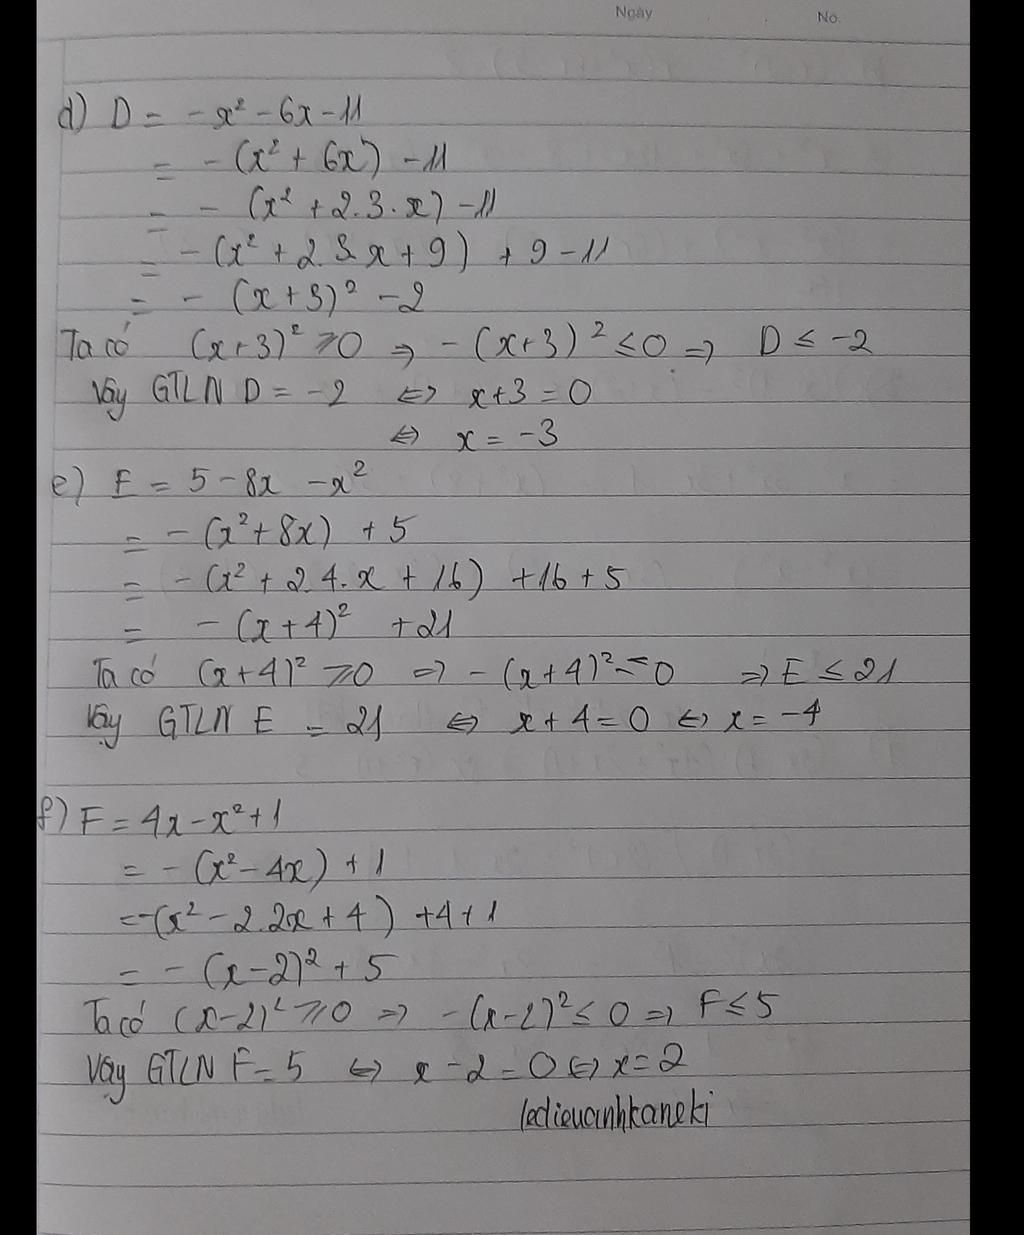 Ngày No.
d) D = - x² - 6x - 11
= - (x² + 6x) - 11
= - (x² + 2.3.x) - 11
= - (x² + 2.3.x + 9) + 9 - 11
= - (x + 3)² - 2
Ta có (x+3)² ≥ 0 => - (x+3)² ≤ 0 => D ≤ -2
Vậy GTLN D = -2 <=> x+3 = 0
<=> x = -3
e) E = 5 - 8x - x²
= - (x² + 8x) + 5
= - (x² + 2.4.x + 16) + 16 + 5
= - (x + 4)² + 21
Ta có (x+4)² ≥ 0 => - (x+4)² ≤ 0 => E ≤ 21
Vậy GTLN E = 21 <=> x + 4 = 0 <=> x = -4
f) F = 4x - x² + 1
= - (x² - 4x) + 1
= -(x² - 2.2x + 4) + 4 + 1
= - (x - 2)² + 5
Ta có (x-2)² ≥ 0 => - (x-2)² ≤ 0 => F ≤ 5
Vậy GTLN F = 5 <=> x - 2 = 0 <=> x = 2
ledieuanhkaneki